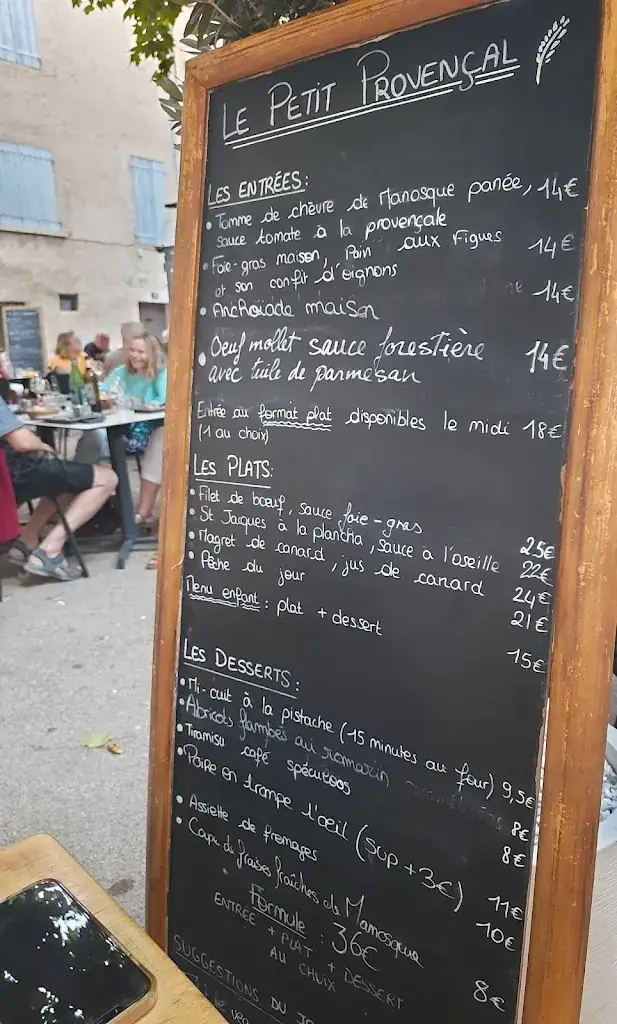 LE PETIT PROVENÇAL
LES ENTRÉES:
• Tomme de chèvre de Manosque panée, 14€
sauce tomate à la provençale
• Foie-gras maison, Pain aux Figues 14€
et son confit d'oignons
• Anchoïade maison 14€
• Oeuf mollet sauce forestière 14€
avec tuile de parmesan
Entrée au format plat disponibles le midi 18€
(1 au choix)
LES PLATS:
• Filet de bœuf, sauce foie-gras 25€
• St Jacques à la plancha, sauce à l'oseille 22€
• Magret de canard, jus de canard 24€
• Pêche du jour 21€
Menu enfant: plat + dessert 15€
LES DESSERTS:
• Mi-cuit à la pistache (15 minutes au four) 9,5€
• Abricots flambés au romarin 8€
• Tiramisu café spéculoos 8€
• Poire en trompe l'œil (sup +3€) 11€
• Assiette de fromages 10€
• Coupe de fraises fraîches de Manosque 8€
Formule: 36€
ENTRÉE + PLAT + DESSERT
AU CHOIX
SUGGESTIONS DU